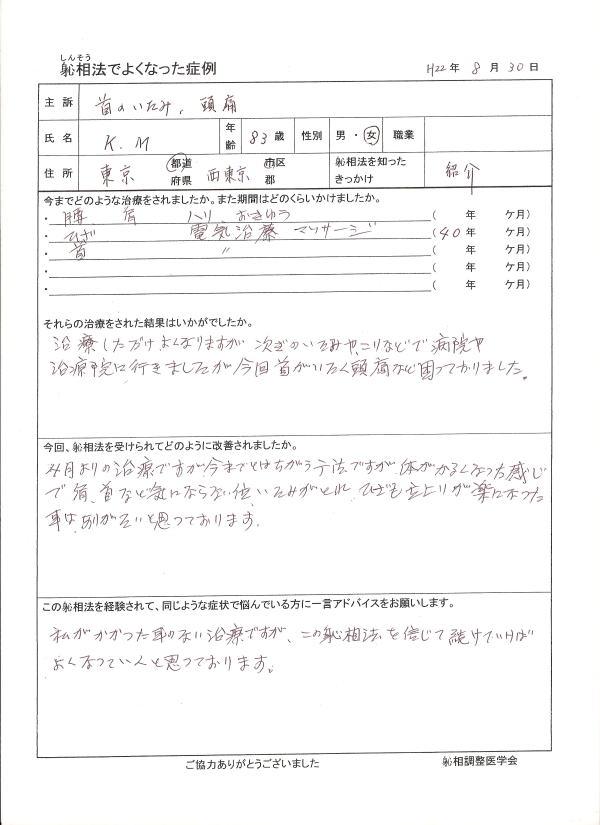 しんそう
躰相法でよくなった症例
H22年 8月30日
主訴 首のいたみ、頭痛
氏名 K.M 年齢 83歳 性別 男・女 職業
住所 東京 都道府県 西東京 市区郡 躰相法を知ったきっかけ 紹介
今までどのような治療をされましたか。また期間はどのくらいかけましたか。
・腰 肩 ハリ、おきゅう ( 年 ケ月)
・ひざ 電気治療 マッサージ (40年 ケ月)
・首 〃 ( 年 ケ月)
・ ( 年 ケ月)
・ ( 年 ケ月)
それらの治療をされた結果はいかがでしたか。
治療しただけよくなりますが 次ぎのいたみや、こりなどで病院や
治療院に行きましたが今回首がいたく頭痛など困っておりました。
今回、躰相法を受けられてどのように改善されましたか。
4月よりの治療ですが今までとはちがう方法ですが、体がかるくなった感じ
で肩、首など気にならない位いたみがとれ ひざも立上りが楽になった
事は、別がないと思っております。
この躰相法を経験されて、同じような症状で悩んでいる方に一言アドバイスをお願いします。
私がかかった事のない治療ですが、この躰相法を信じて続けていけば
よくなっていくと思っております。
ご協力ありがとうございました
躰相調整医学会